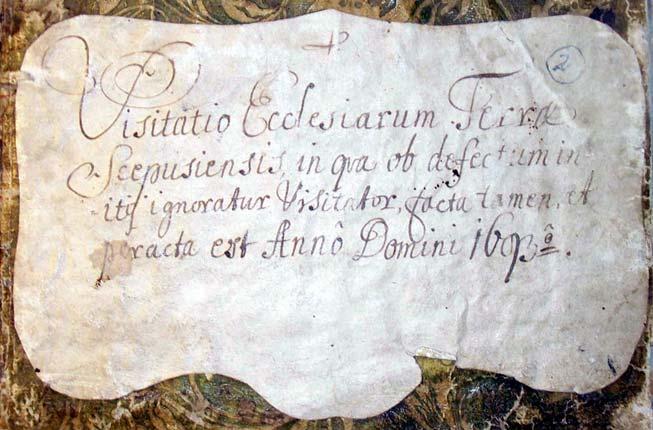 2
Visitatio Ecclesiarum Terræ
Scepusiensis, in qva ob defectum in
itij ignoratur Visitator, facta tamen, et
peracta est Annô Domini 1693ô.